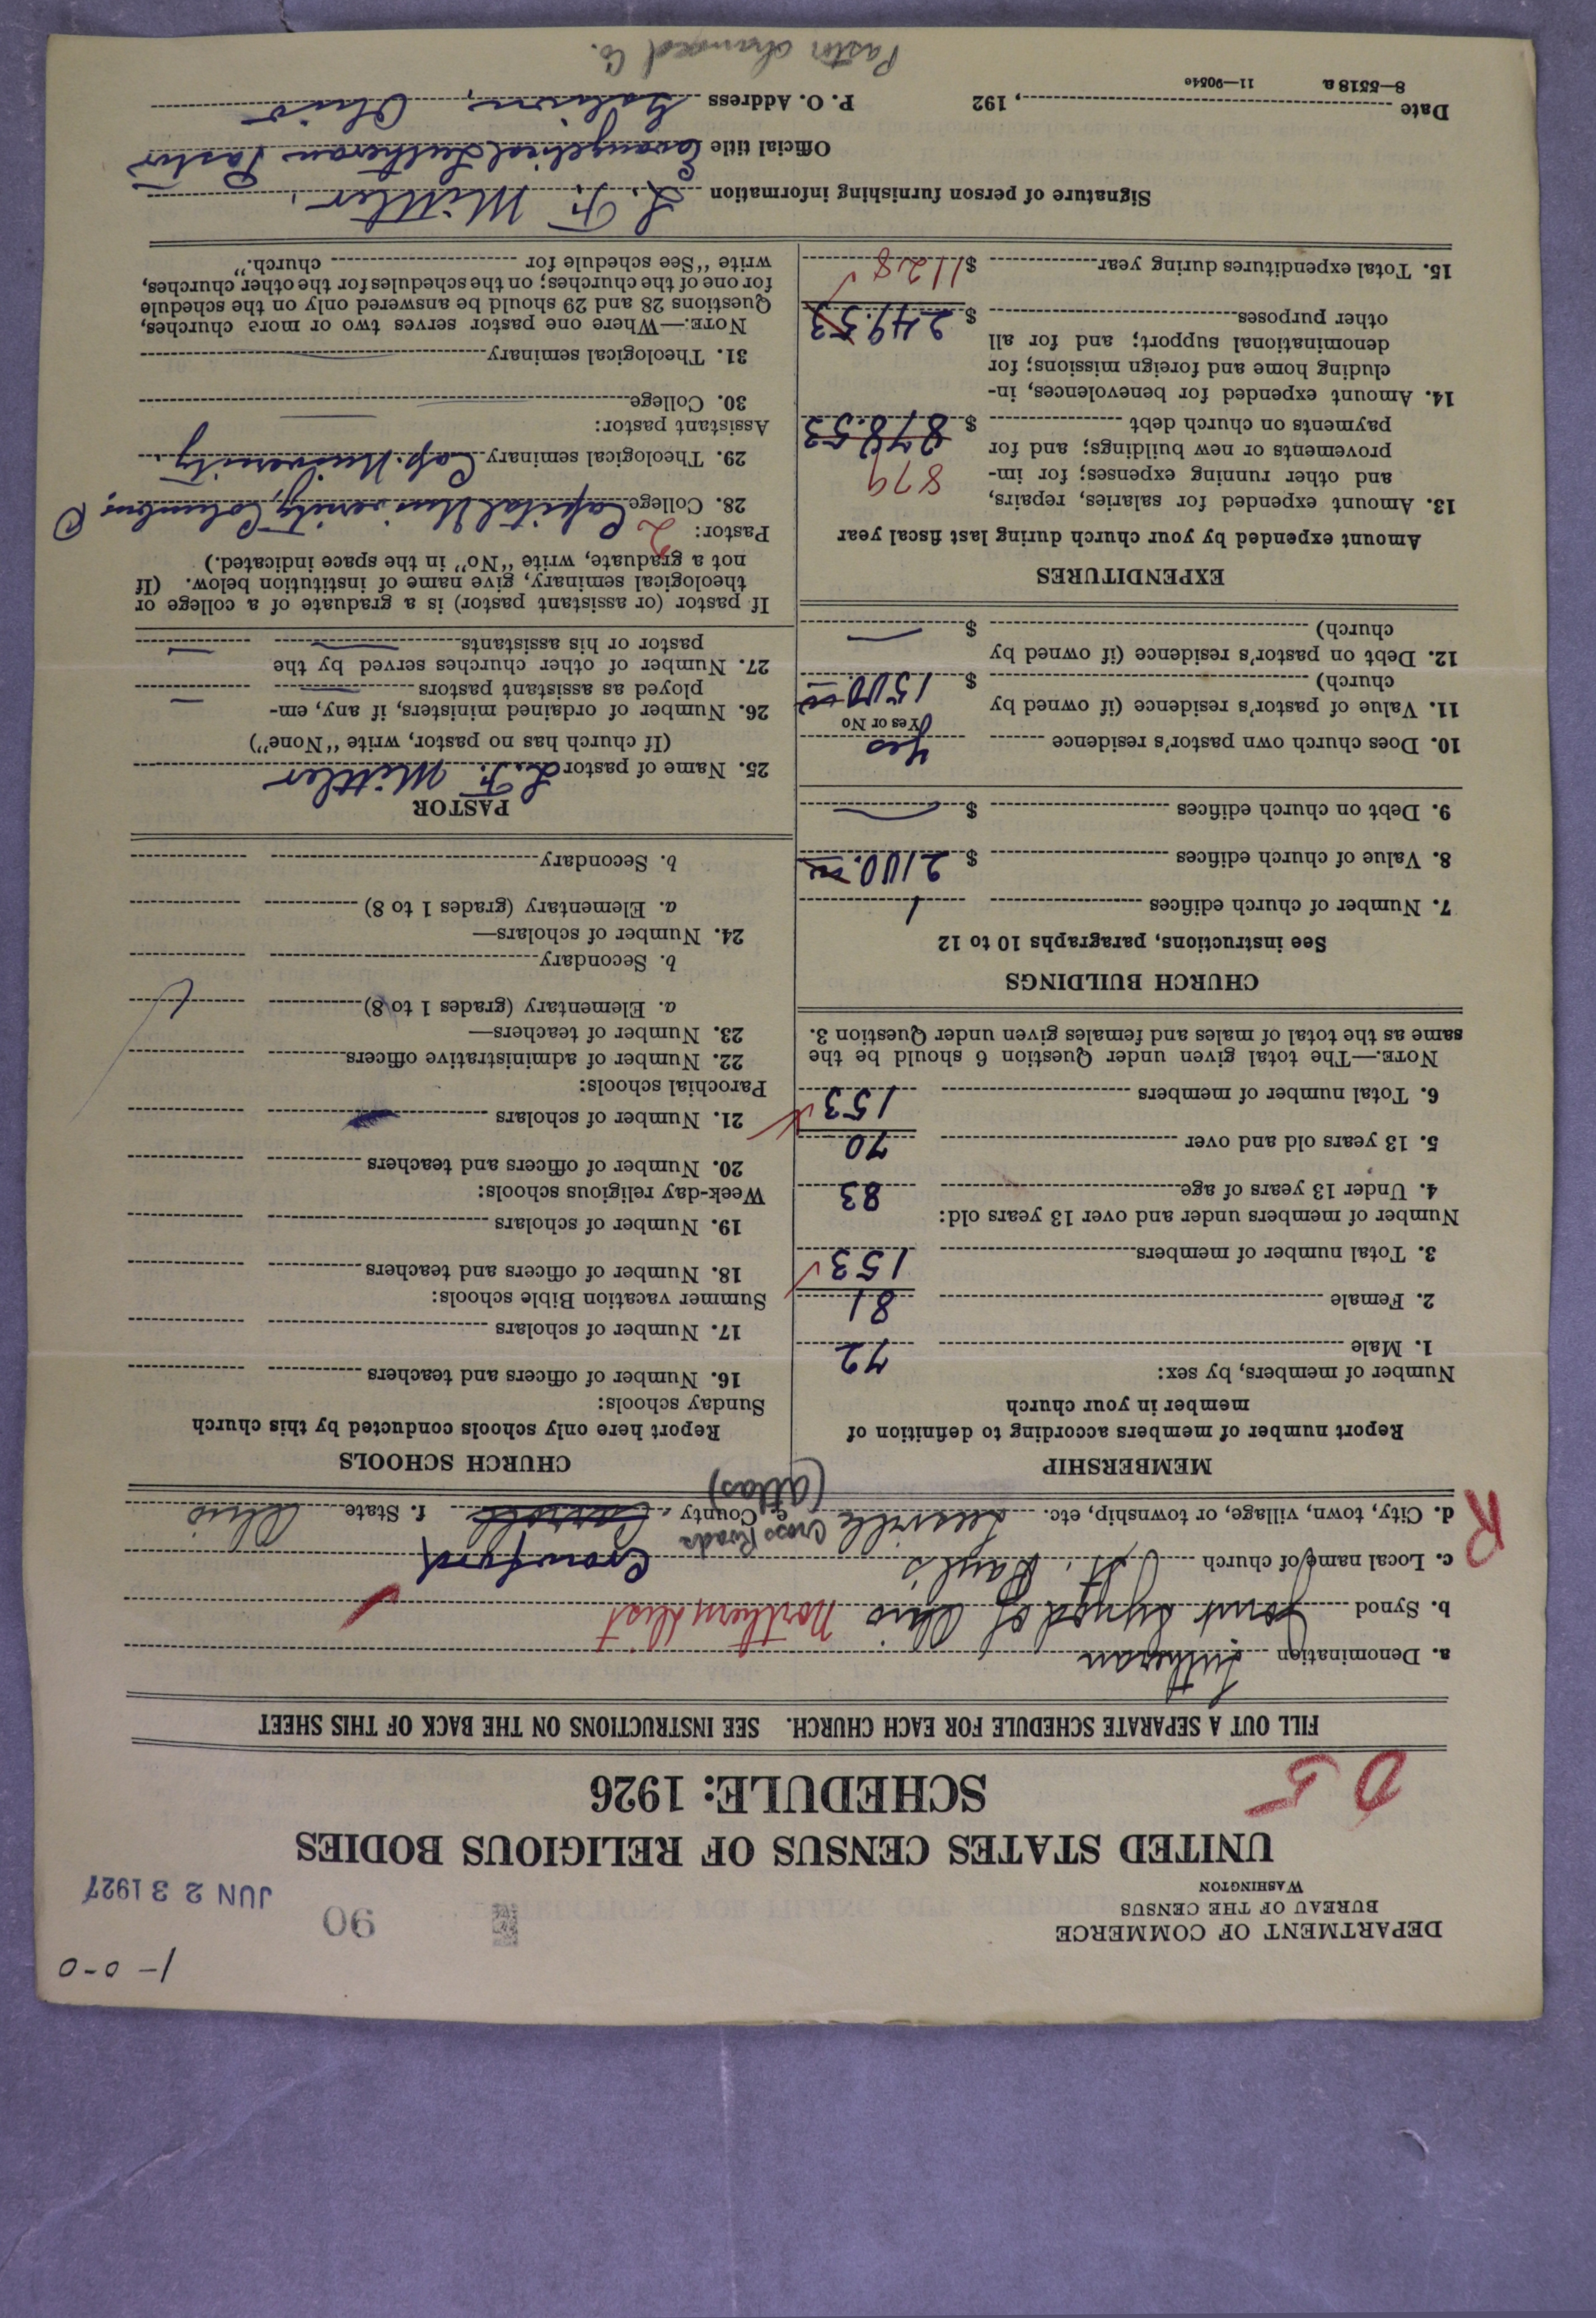 1-0-0
DEPARTMENT OF COMMERCE
BUREAU OF THE CENSUS
WASHINGTON
90
JUN 23 1927
UNITED STATES CENSUS OF RELIGIOUS BODIES
SCHEDULE: 1926
05
FILL OUT A SEPARATE SCHEDULE FOR EACH CHURCH. SEE INSTRUCTIONS ON THE BACK OF THIS SHEET
a. Denomination Lutheran
b. Synod Joint Synod of Ohio Northern Dist
c. Local name of church St. Paul's Crawford
R
d. City, town, village, or township, etc. Leesville Cross Roads e. County Carroll f. State Ohio
(atlas)
MEMBERSHIP
Report number of members according to definition of
member in your church
Number of members, by sex:
1. Male 72
2. Female 81
3. Total number of members 153
Number of members under and over 13 years old:
4. Under 13 years of age 83
5. 13 years old and over 70
6. Total number of members 153
NOTE.—The total given under Question 6 should be the
same as the total of males and females given under Question 3.
CHURCH BUILDINGS
See instructions, paragraphs 10 to 12
7. Number of church edifices 1
8. Value of church edifices $ 2100.00
9. Debt on church edifices $ —
10. Does church own pastor's residence Yes
Yes or No
11. Value of pastor's residence (if owned by
church) $ 1500.00
12. Debt on pastor's residence (if owned by
church) $ —
EXPENDITURES
Amount expended by your church during last fiscal year
13. Amount expended for salaries, repairs,
and other running expenses; for im- 879
provements or new buildings; and for
payments on church debt $ 878.53
14. Amount expended for benevolences, in-
cluding home and foreign missions; for
denominational support; and for all
other purposes $ 249.53
15. Total expenditures during year $ 1128
CHURCH SCHOOLS
Report here only schools conducted by this church
Sunday schools:
16. Number of officers and teachers
17. Number of scholars
Summer vacation Bible schools:
18. Number of officers and teachers
19. Number of scholars
Week-day religious schools:
20. Number of officers and teachers
21. Number of scholars
Parochial schools:
22. Number of administrative officers
23. Number of teachers—
a. Elementary (grades 1 to 8)
b. Secondary
24. Number of scholars—
a. Elementary (grades 1 to 8)
b. Secondary
PASTOR
25. Name of pastor L. F. Mittler
(If church has no pastor, write "None")
26. Number of ordained ministers, if any, em-
ployed as assistant pastors —
27. Number of other churches served by the
pastor or his assistants —
If pastor (or assistant pastor) is a graduate of a college or
theological seminary, give name of institution below. (If
not a graduate, write "No" in the space indicated.)
Pastor: 2
28. College Capital University, Columbus, O
29. Theological seminary Cap. University
Assistant pastor:
30. College —
31. Theological seminary —
NOTE.—Where one pastor serves two or more churches,
Questions 28 and 29 should be answered only on the schedule
for one of the churches; on the schedules for the other churches,
write "See schedule for church."
Signature of person furnishing information L. F. Mittler.
Official title Evangelical Lutheran Pastor
Date , 192 P. O. Address Galion, Ohio
8—5518 a 11—9054e
Pastor changed Co.